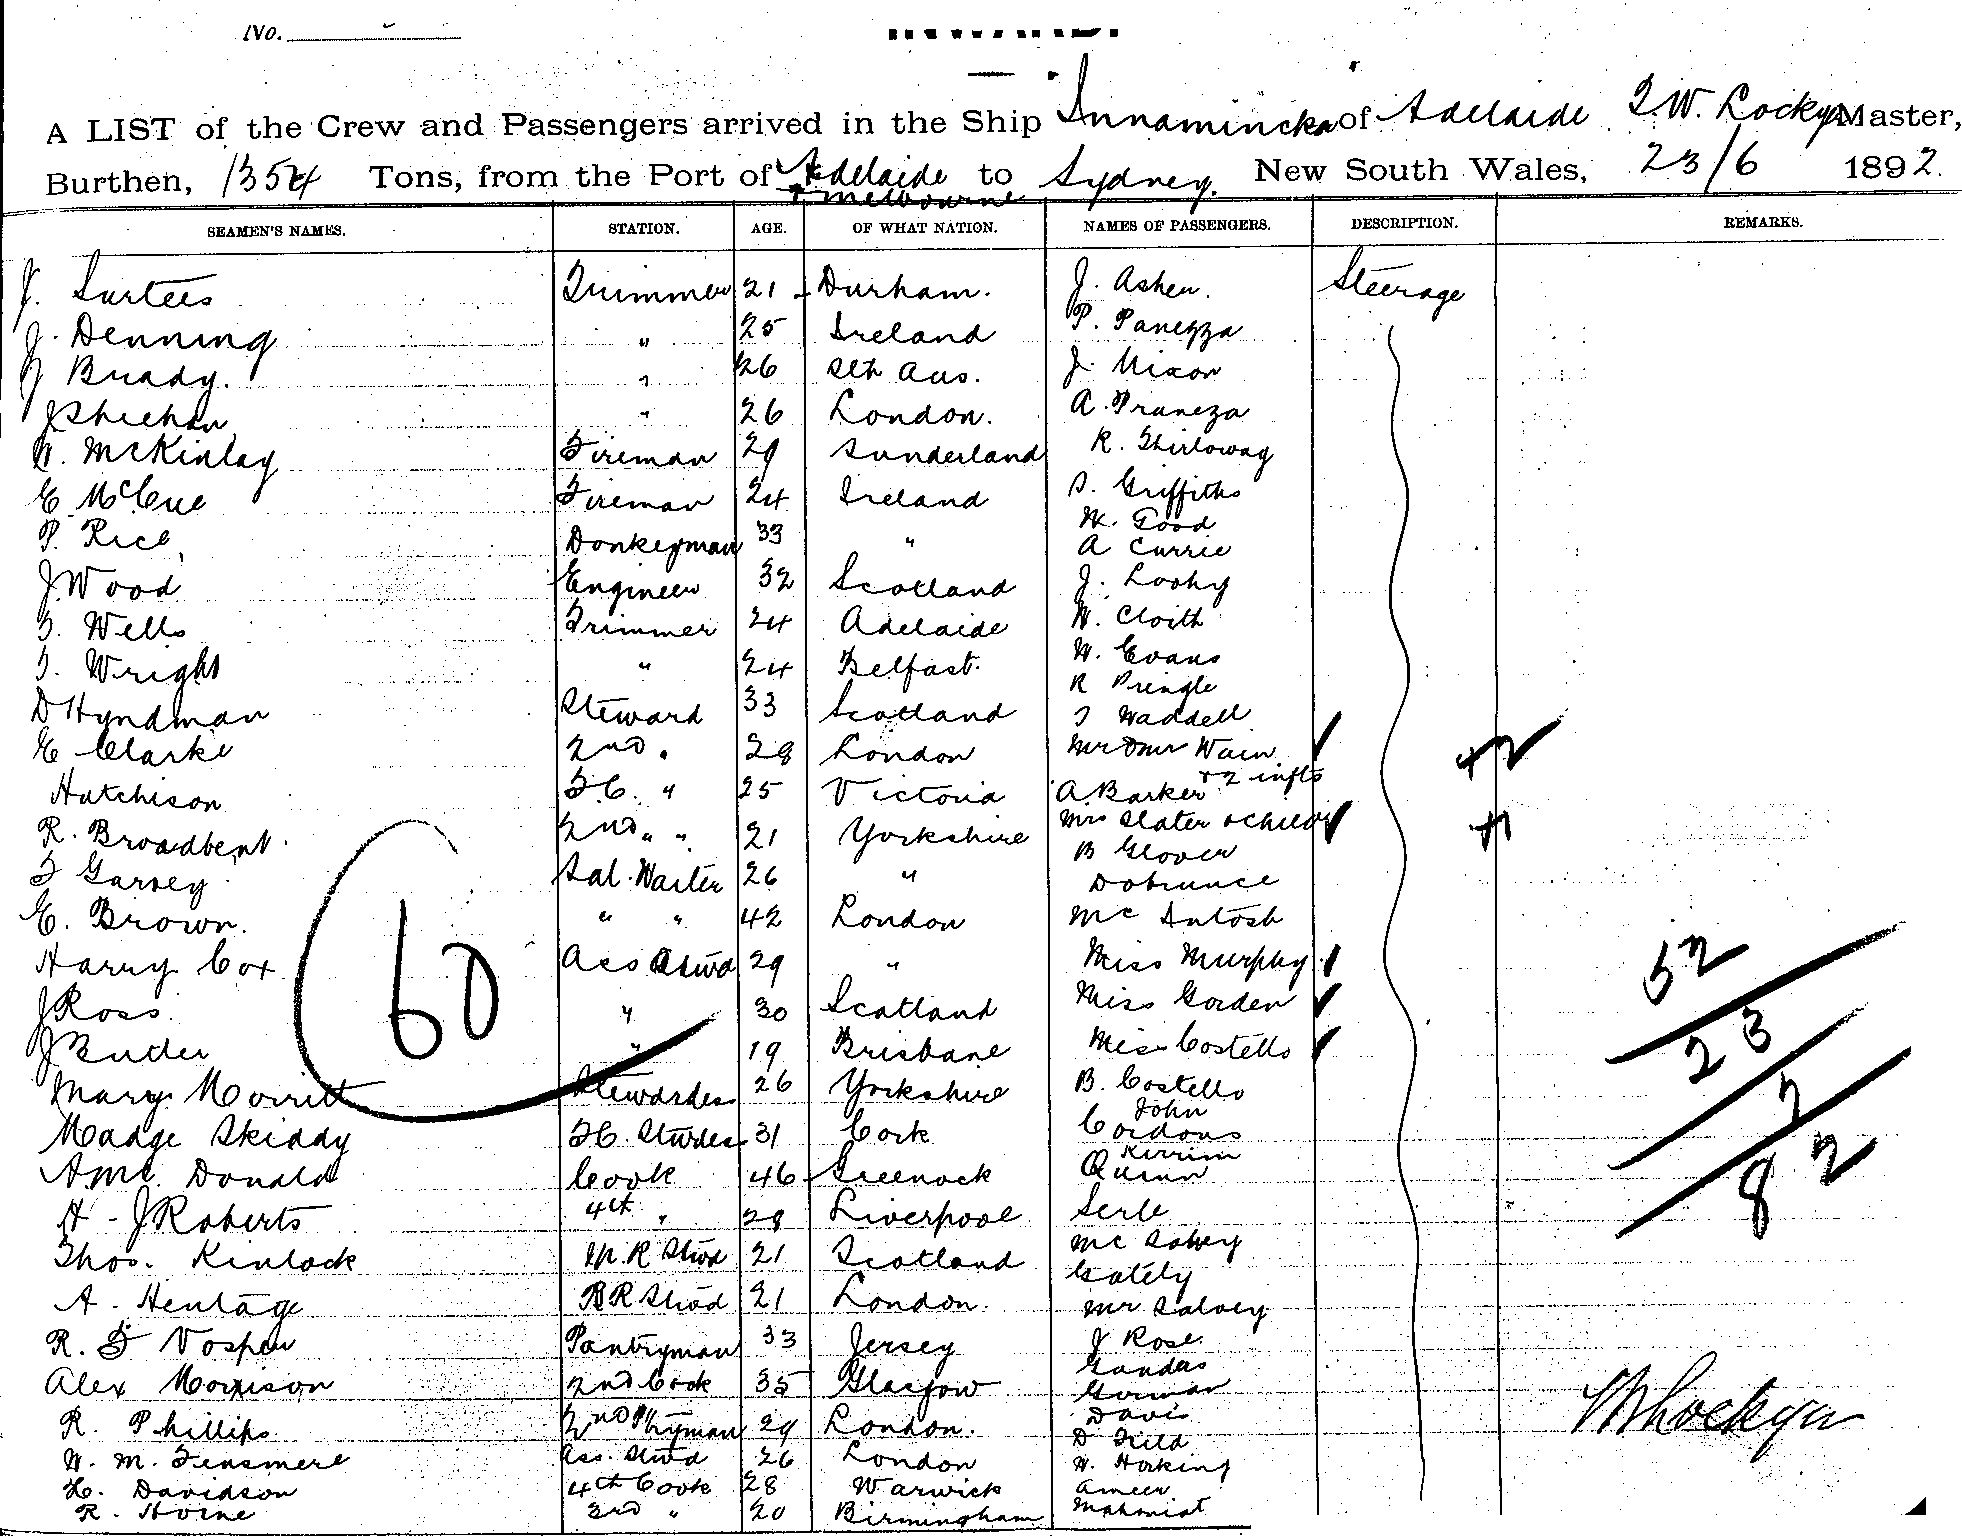 No.
A LIST of the Crew and Passengers arrived in the Ship Innamincka of Adelaide J.W. Lockyer Master,
Burthen, 1354 Tons, from the Port of Adelaide to Sydney. New South Wales, 23/6 1892.
+ Melbourne
SEAMEN'S NAMES. STATION. AGE. OF WHAT NATION. NAMES OF PASSENGERS. DESCRIPTION. REMARKS.
J. Surtees Trimmer 21 Durham. J. Asher. Steerage
J. Denning " 25 Ireland P. Panezza
J Brady. " 26 Sth Aus. J. Nixon
J Sheehan " 26 London. A. Praneza
W. McKinlay Fireman 29 Sunderland R. Thirloway
E McCue Fireman 24 Ireland S. Griffiths
W. Good
P. Rice Donkeyman 33 " A Currie
J. Wood Engineer 32 Scotland J. Looky
T. Wells Trimmer 24 Adelaide W. Cloith
T. Wright " 24 Belfast. W. Evans
R Pringle
D Hyndman Steward 33 Scotland T Waddell
E Clarke 2nd " 28 London Mr & Mrs Wain + 2 infts +2
Hutchison F.C. " 25 Victoria A. Barker
R. Broadbent 2nd " " 21 Yorkshire Mrs Slater & child +1
B Glover
T Garvey Sal. Waiter 26 " Dobrunce
E. Brown. " " 42 London McIntosh
Harry Cox Ass Stwd 29 " Miss Murphy
J Ross. " 30 Scotland Miss Gorden
J Butler " 19 Brisbane Miss Costello
Mary Morritt Stewardess 26 Yorkshire B. Costello
Madge Skiddy F.C. Stwdess 31 Cork John Cordons
A Mc Donald Cook 46 Greenock Quinn
H - J Roberts 4th " 28 Liverpool Serle
Thos. Kinlock M.R Stwd 21 Scotland
Gately
A. Hentage B R Stwd 21 London. Mr Salvey
R. F Vosper Pantryman 33 Jersey J Rose
Alex Morrison 2nd Cook 35 Glasgow Gorman
R. Phillips 2nd Ptryman 29 London. Davis
D Field
W. M. Finsmere Ass. Stwd 26 London W. Hocking
H. Davidson 4th Cook 28 Warwick Ameer
R. Horne 3rd " 20 Birmingham Mahmiat
60
52
23
7
82
W Lockyer